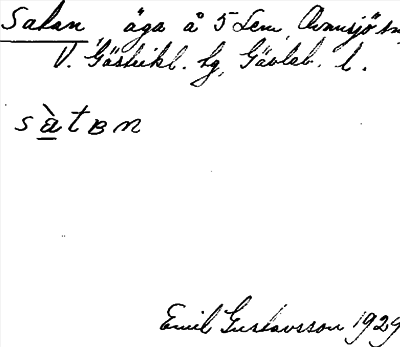 Satan, äga å 5 Sem, Ovansjö sn,
V. Gästrikl. hg, Gävleb. l.
sàtɒn
Emil Gustavsson 1929